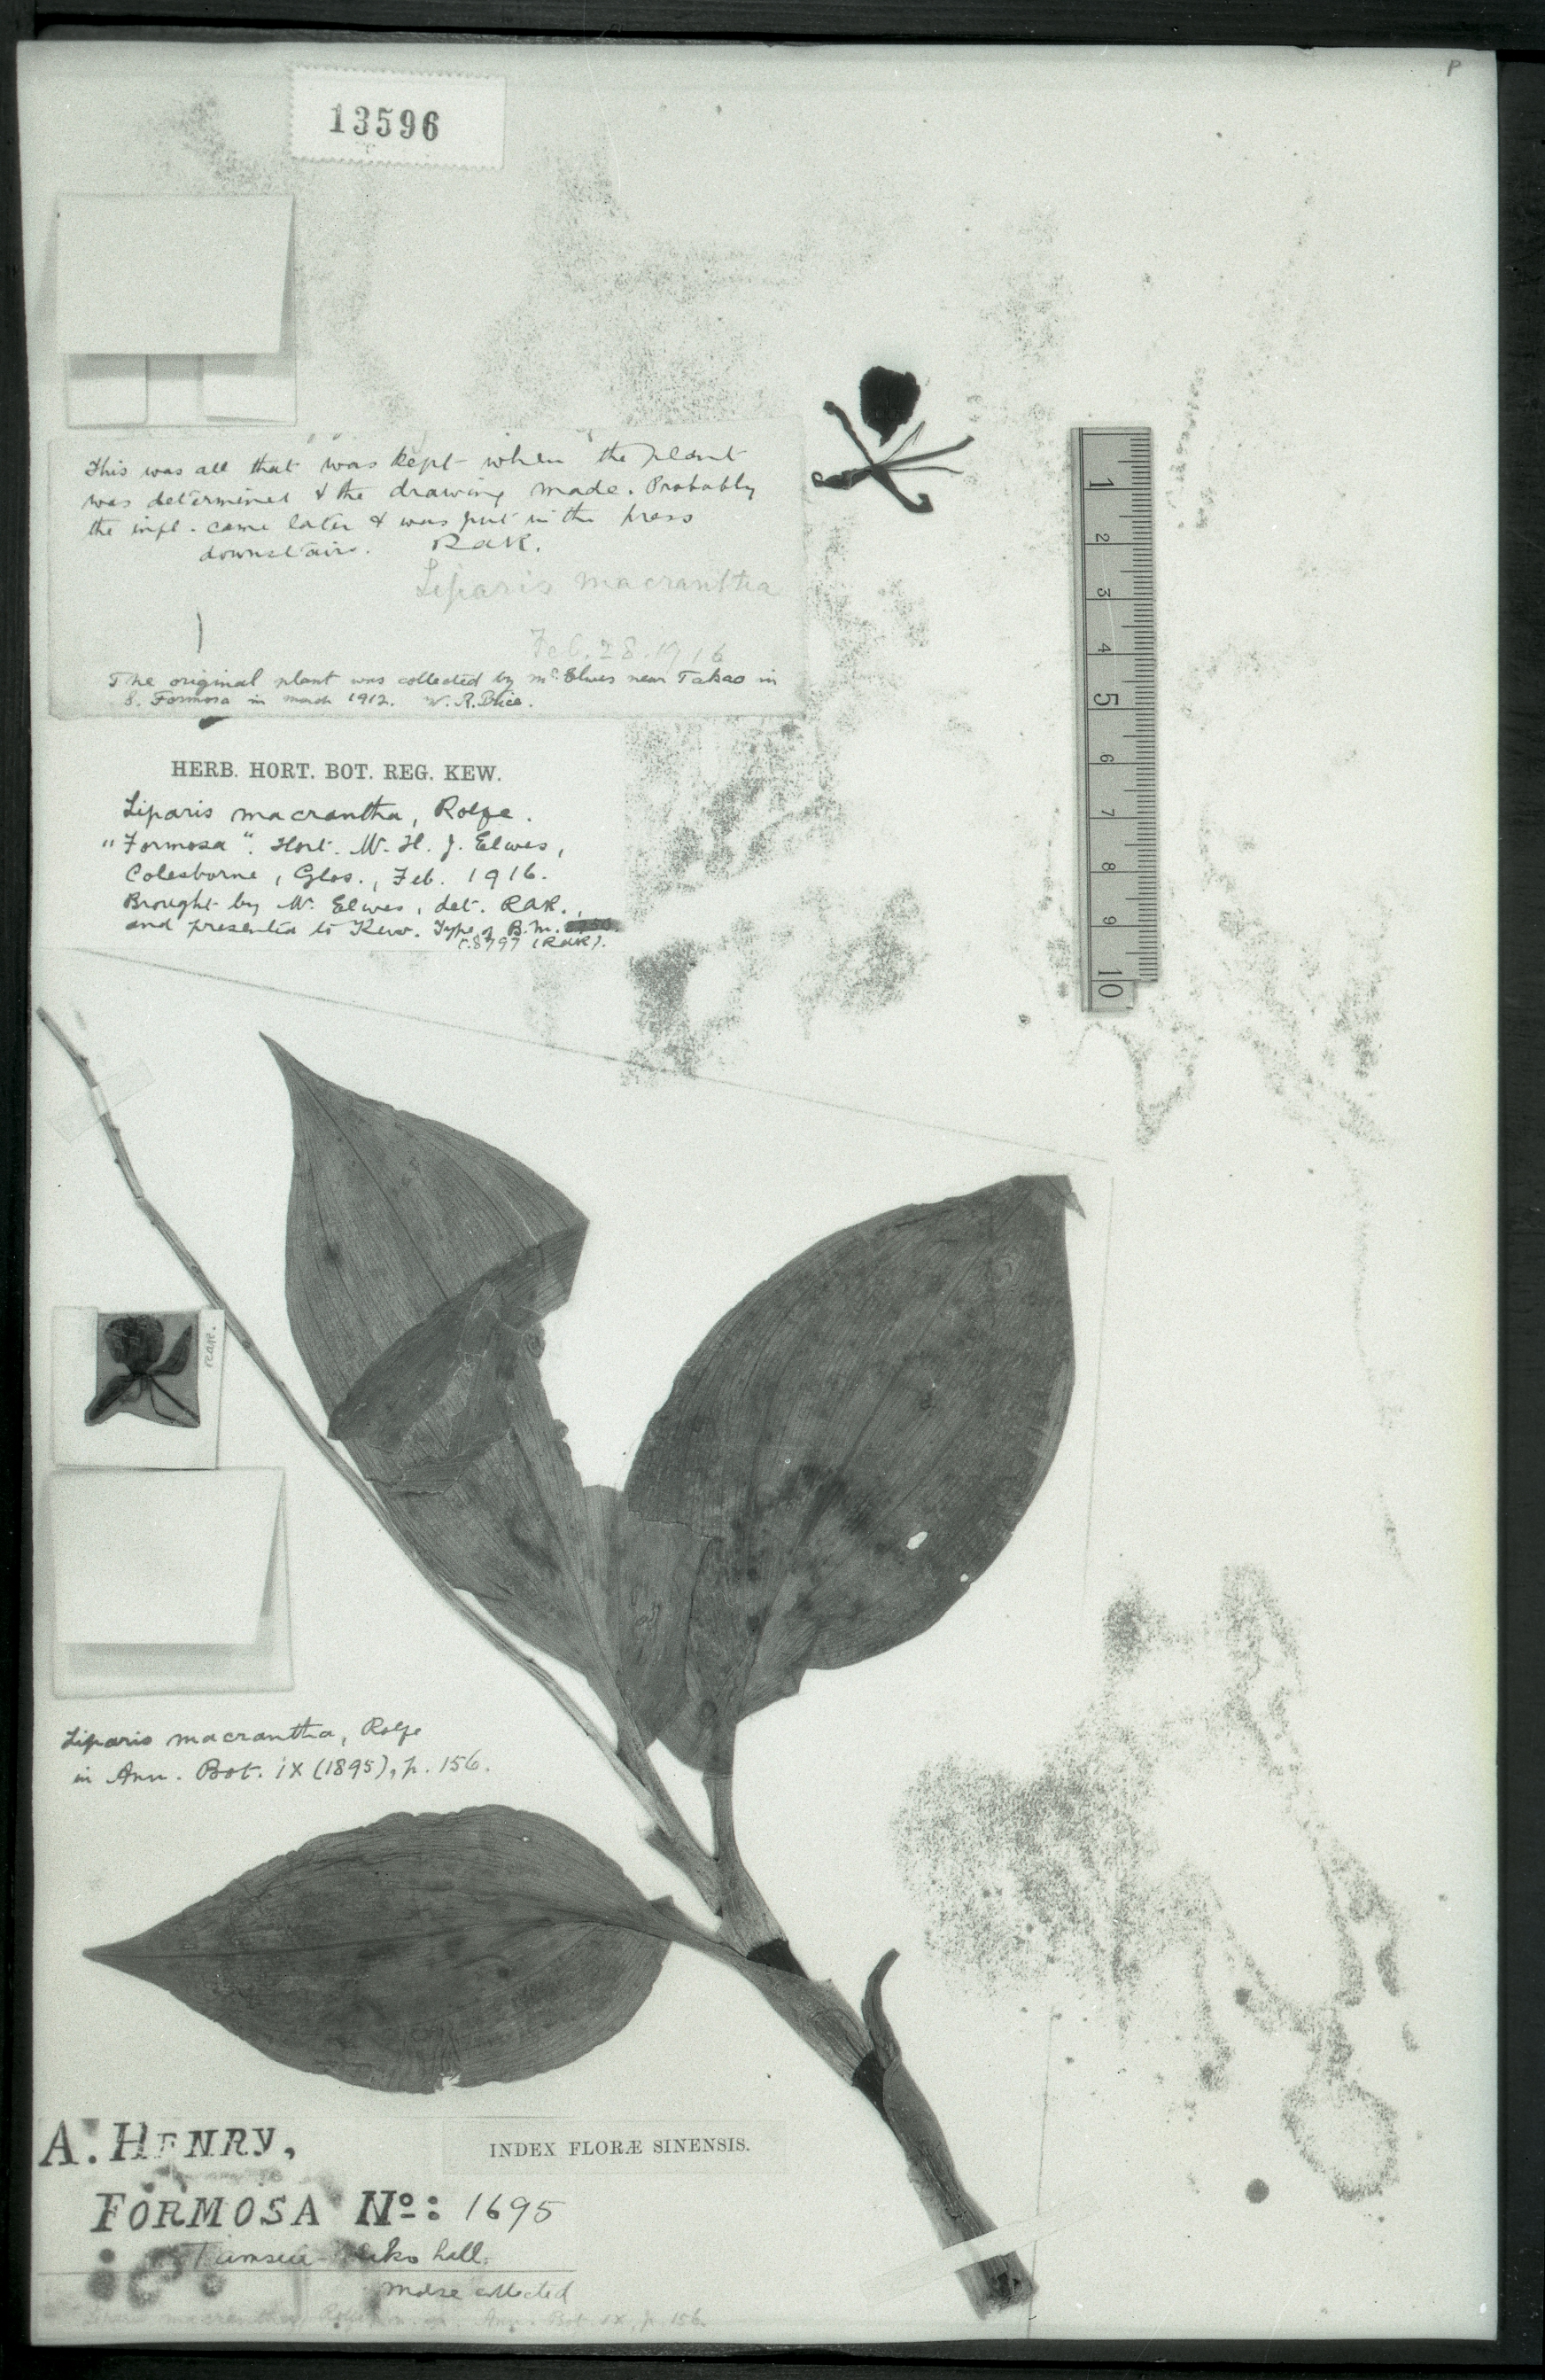 P
13596
This was all that was kept when the plant
was determined & the drawing made. Probably
the infl. came later & was put in the press
downstairs. RAR.
Liparis macrantha
Feb. 28. 1916
The original plant was collected by Mr Elwes near Takao in
S. Formosa in March 1912. W. R. Price.
1
2
3
4
5
6
7
8
9
10
HERB. HORT. BOT. REG. KEW.
Liparis macrantha, Rolfe.
"Formosa". Hort. Mr. H. J. Elwes,
Colesborne, Glos., Feb. 1916.
Brought by Mr. Elwes, det. RAR.,
and presented to Kew. Type of B.M.
t.8797 (RAR).
RAR.
Liparis macrantha, Rolfe
in Ann. Bot. ix (1895), p. 156.
A. HENRY,
INDEX FLORÆ SINENSIS.
FORMOSA No: 1695
Tamsui hill.
Morse collected
Liparis macrantha, Rolfe Ann. Bot. ix, p. 156.